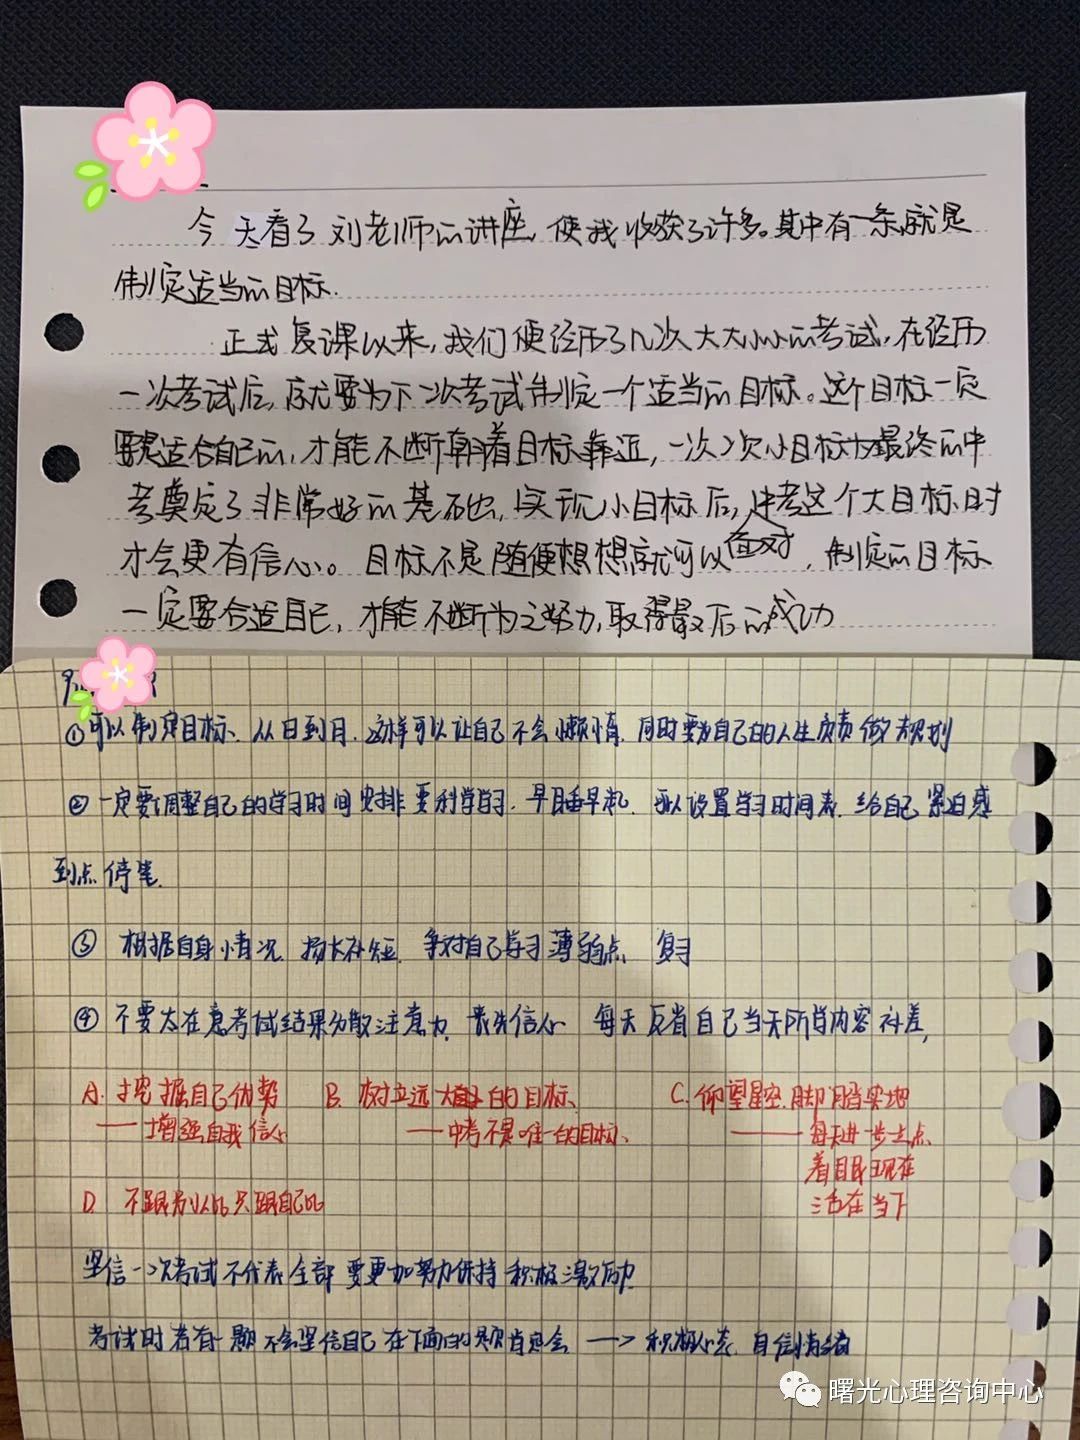 今天看了刘老师的讲座,使我收获了许多。其中有一条,就是
制定适当的目标.
正式复课以来,我们便经历了几次大大小小的考试,在经历
一次考试后,就要为下一次考试制定一个适当的目标。这个目标一定
要是适合自己的,才能不断朝着目标靠近,一次次小目标为最终的中
考奠定了非常好的基础,实现小目标后,中考这个大目标时
才会更有信心。目标不是随便想想就可以面对,制定的目标
一定要合适自己,才能不断为之努力,取得最后的成功
①可以制定目标、从日到月.这样可以让自己不会懒惰.同时要为自己的人生负责做规划
②一定要调整自己的学习时间安排要科学学习.早睡早起.可以设置学习时间表.给自己紧迫感
到点停笔.
③ 根据自身情况.扬长补短.针对自己学习薄弱点、复习
④ 不要太在意考试结果分散注意力.丧失信心 每天反省自己当天所学内容补差,
A.挖掘自己优势 B.树立远大的目标、 C.仰望星空.脚踏实地
——增强自我信心 ——中考不是唯一的目标、 ——每天进一步一点
着眼现在
活在当下
D. 不跟别人比只跟自己比
坚信一次考试不代表全部要更加努力保持积极激励
考试时若有一题不会坚信自己在下面的题肯定会 —> 积极心态 自信情绪
曙光心理咨询中心